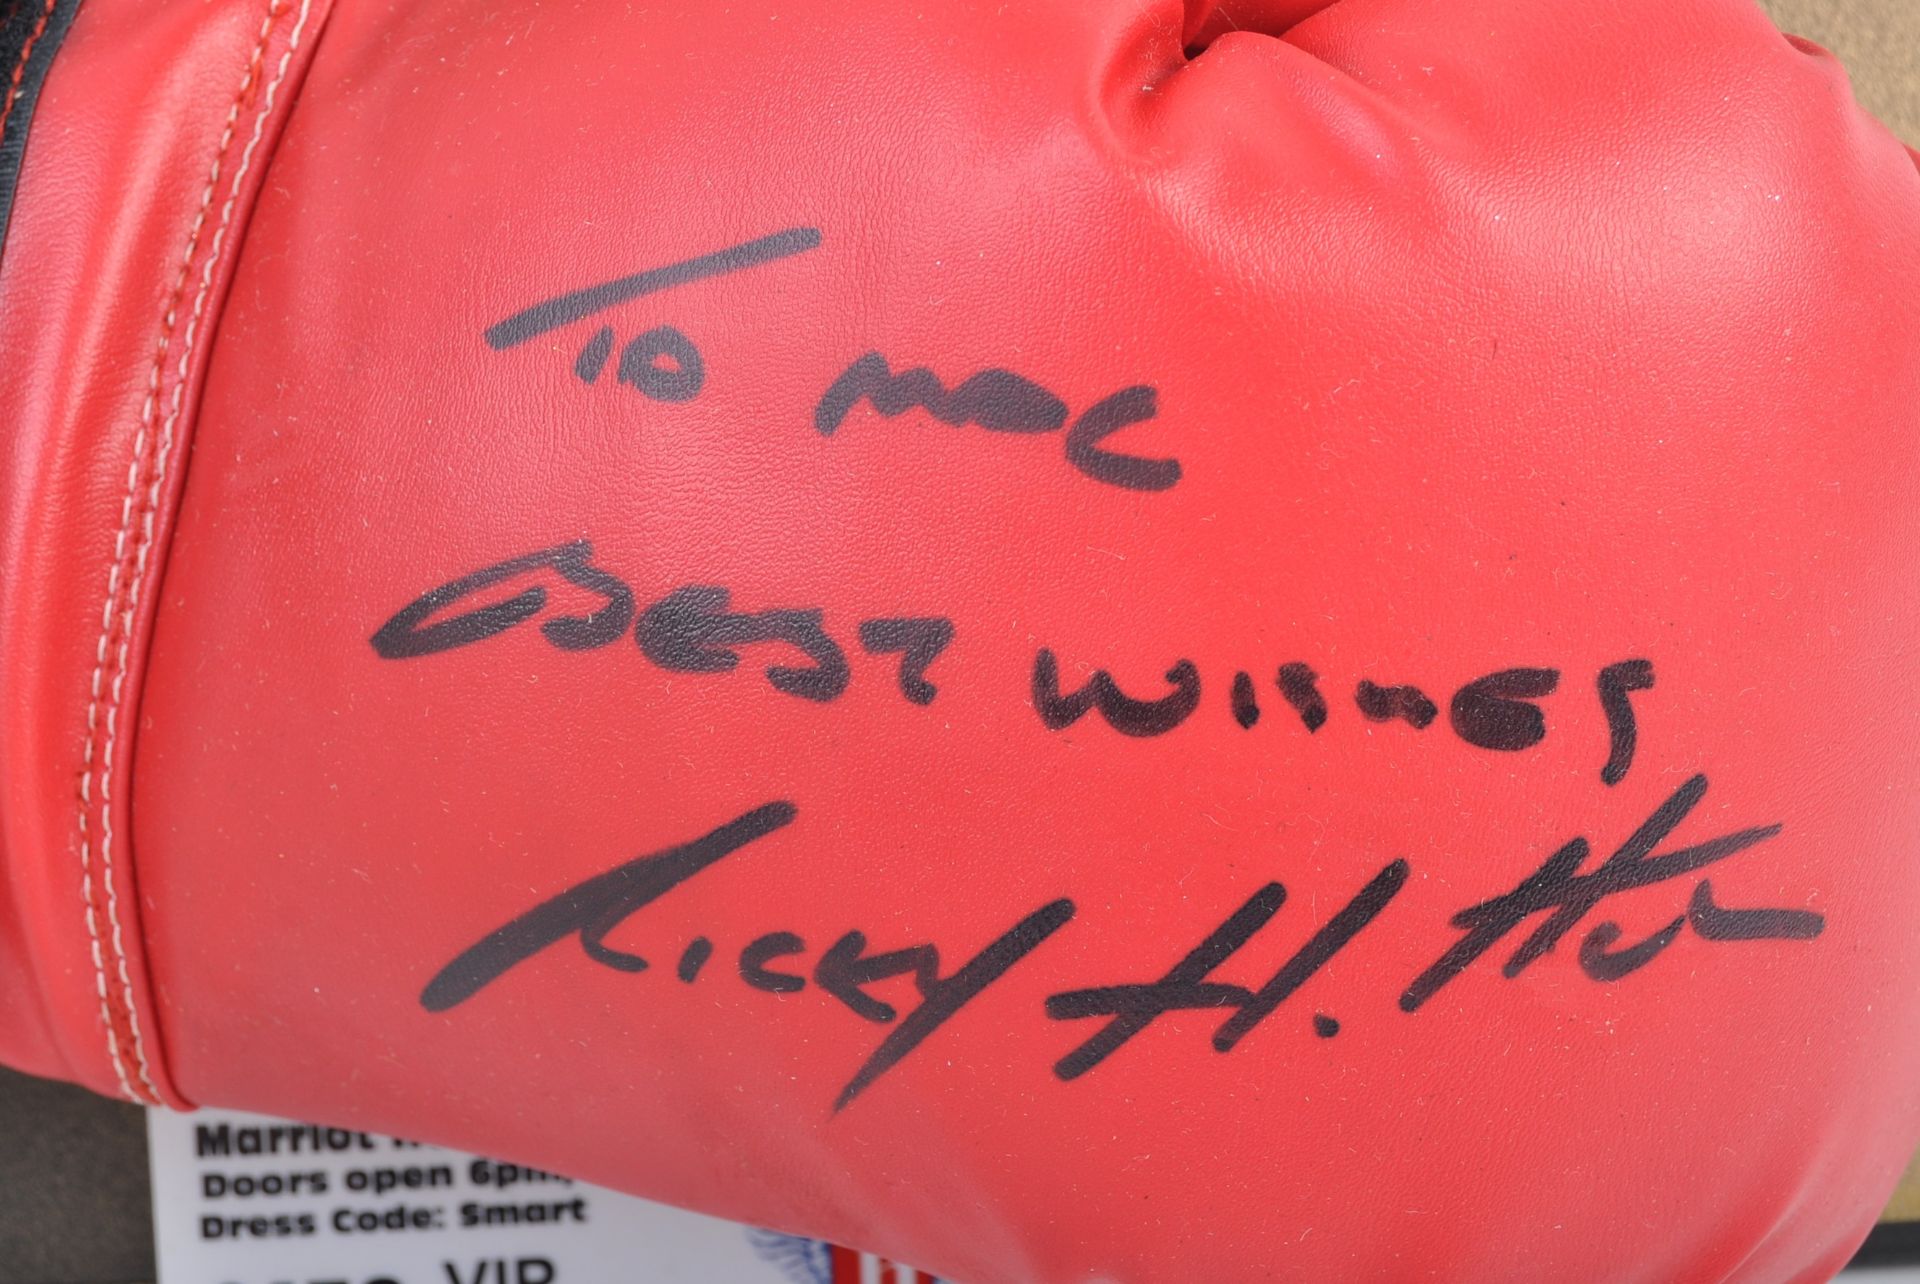 To mac
Best wishes
Ricky H. Hat
Marriot
Doors open 6pm,
Dress Code: Smart
VIP